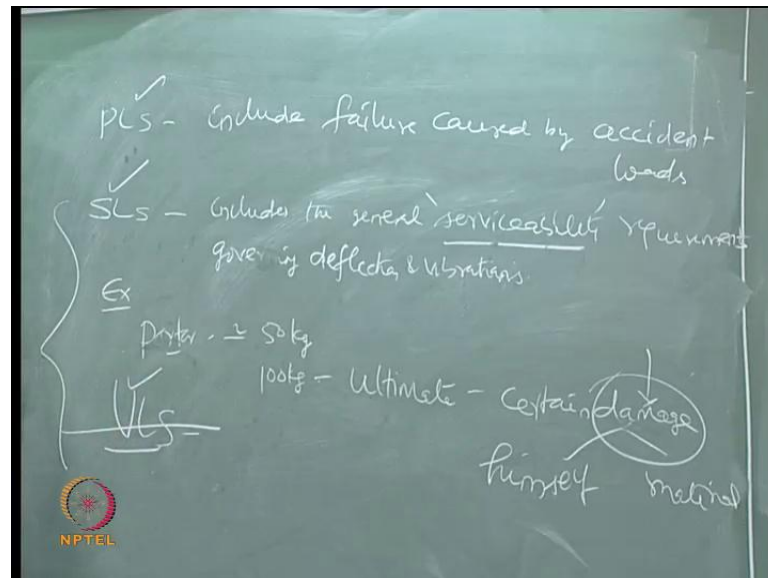 PLS - include failure caused by accident
loads
SLS - includes the general 'serviceability' requirement
governing deflection & vibrations.
Ex
porter. ≃ 50kg
100kg - Ultimate - certain damage
ULS -
himself material
NPTEL